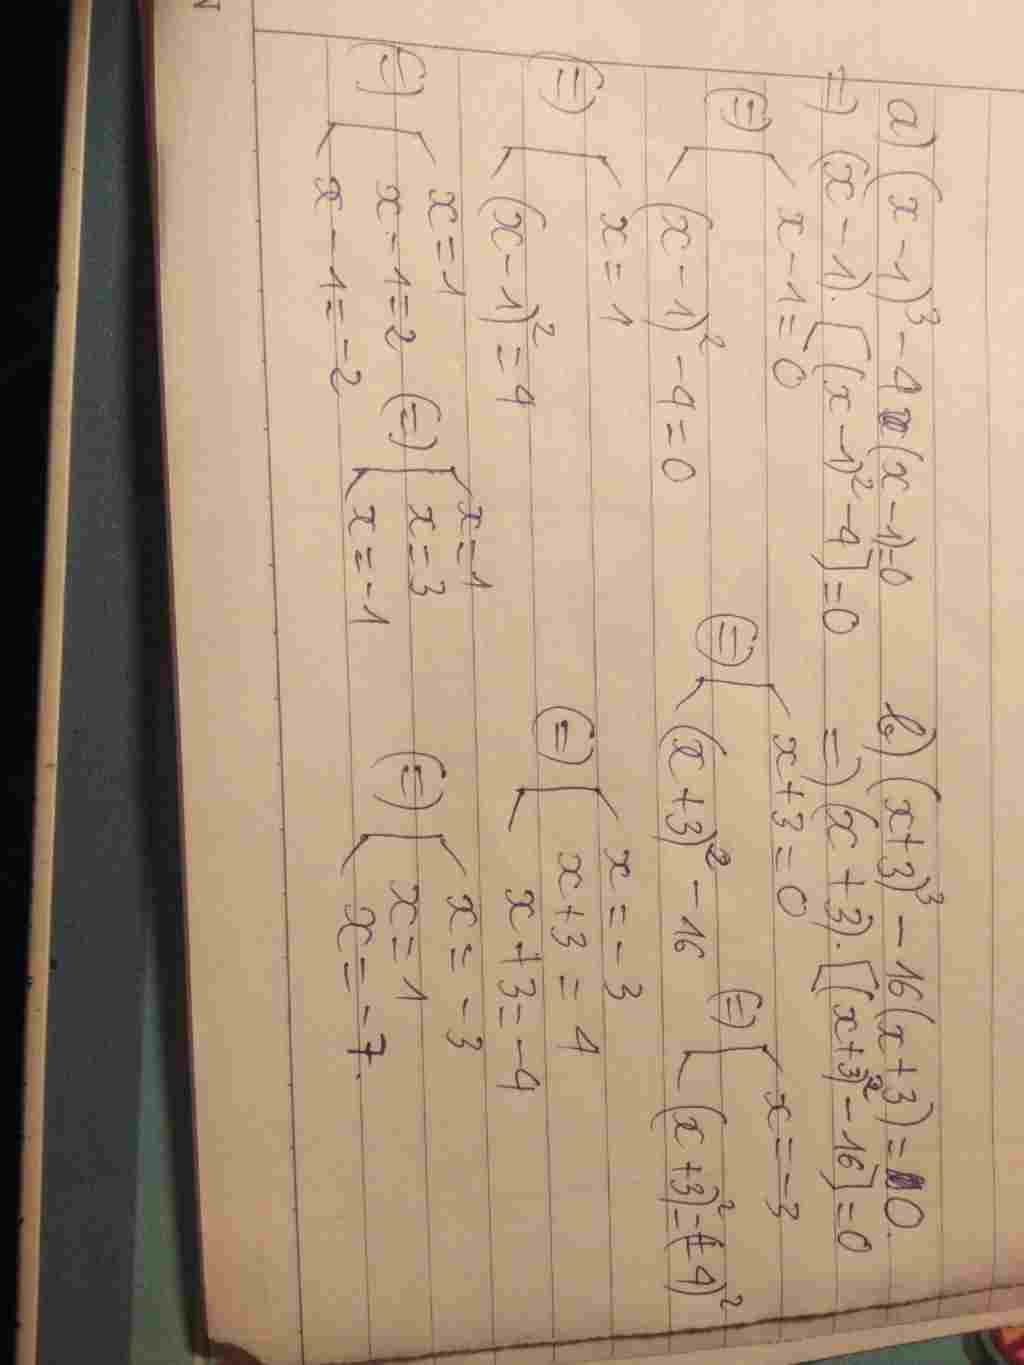 a) (x-1)³ - 4(x-1)=0
=) (x-1).[(x-1)²-4]=0
(=) [ x-1=0
(x-1)²-4=0
(=) [ x=1
(x-1)²=4
(=) [ x=1
x-1=2
x-1=-2
(=) [ x=1
x=3
x=-1
b) (x+3)³ - 16(x+3)=0.
=) (x+3).[(x+3)²-16]=0
(=) [ x+3=0
(x+3)²-16
(=) [ x=-3
(x+3)²=(4)²
(=) [ x=-3
x+3=4
x+3=-4
(=) [ x=-3
x=1
x=-7.